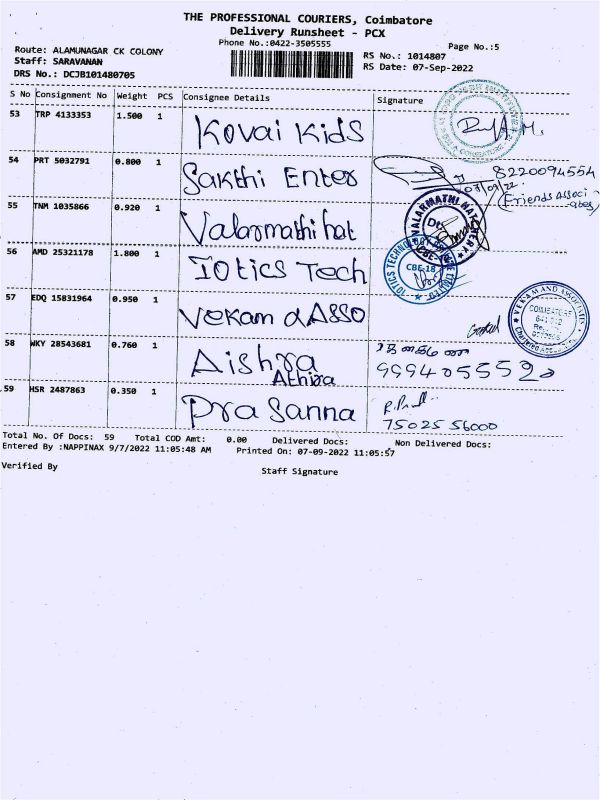 THE PROFESSIONAL COURIERS, Coimbatore
Delivery Runsheet - PCX
Phone No.:0422-3505555
Page No.:5
Route: ALAMUNAGAR CK COLONY
Staff: SARAVANAN
DRS No.: DCJB101480705
RS No.: 1014807
RS Date: 07-Sep-2022
S No Consignment No Weight PCS Consignee Details Signature
53 TRP 4133353 1.500 1 Kovai Kids
54 PRT 5032791 0.800 1 Sakthi Enter 8220094554
(Friends Associates)
55 TNM 1035866 0.920 1 Valarmathi hat
VALARMATHI HAT
CBE-18
56 AMD 25321178 1.800 1 IOtics Tech
IOTICS TECHNOLOGY
CBE-18
57 EDQ 15831964 0.950 1 Vekam & ASSO
VEKAM AND ASSOCIATES
COIMBATORE
58 WKY 28543681 0.760 1 Aishra
Athira
59 HSR 2487863 0.350 1 Prasanna
75025 56000
Total No. Of Docs: 59 Total COD Amt: 0.00 Delivered Docs: Non Delivered Docs:
Entered By :NAPPINAX 9/7/2022 11:05:48 AM Printed On: 07-09-2022 11:05:57
Verified By Staff Signature